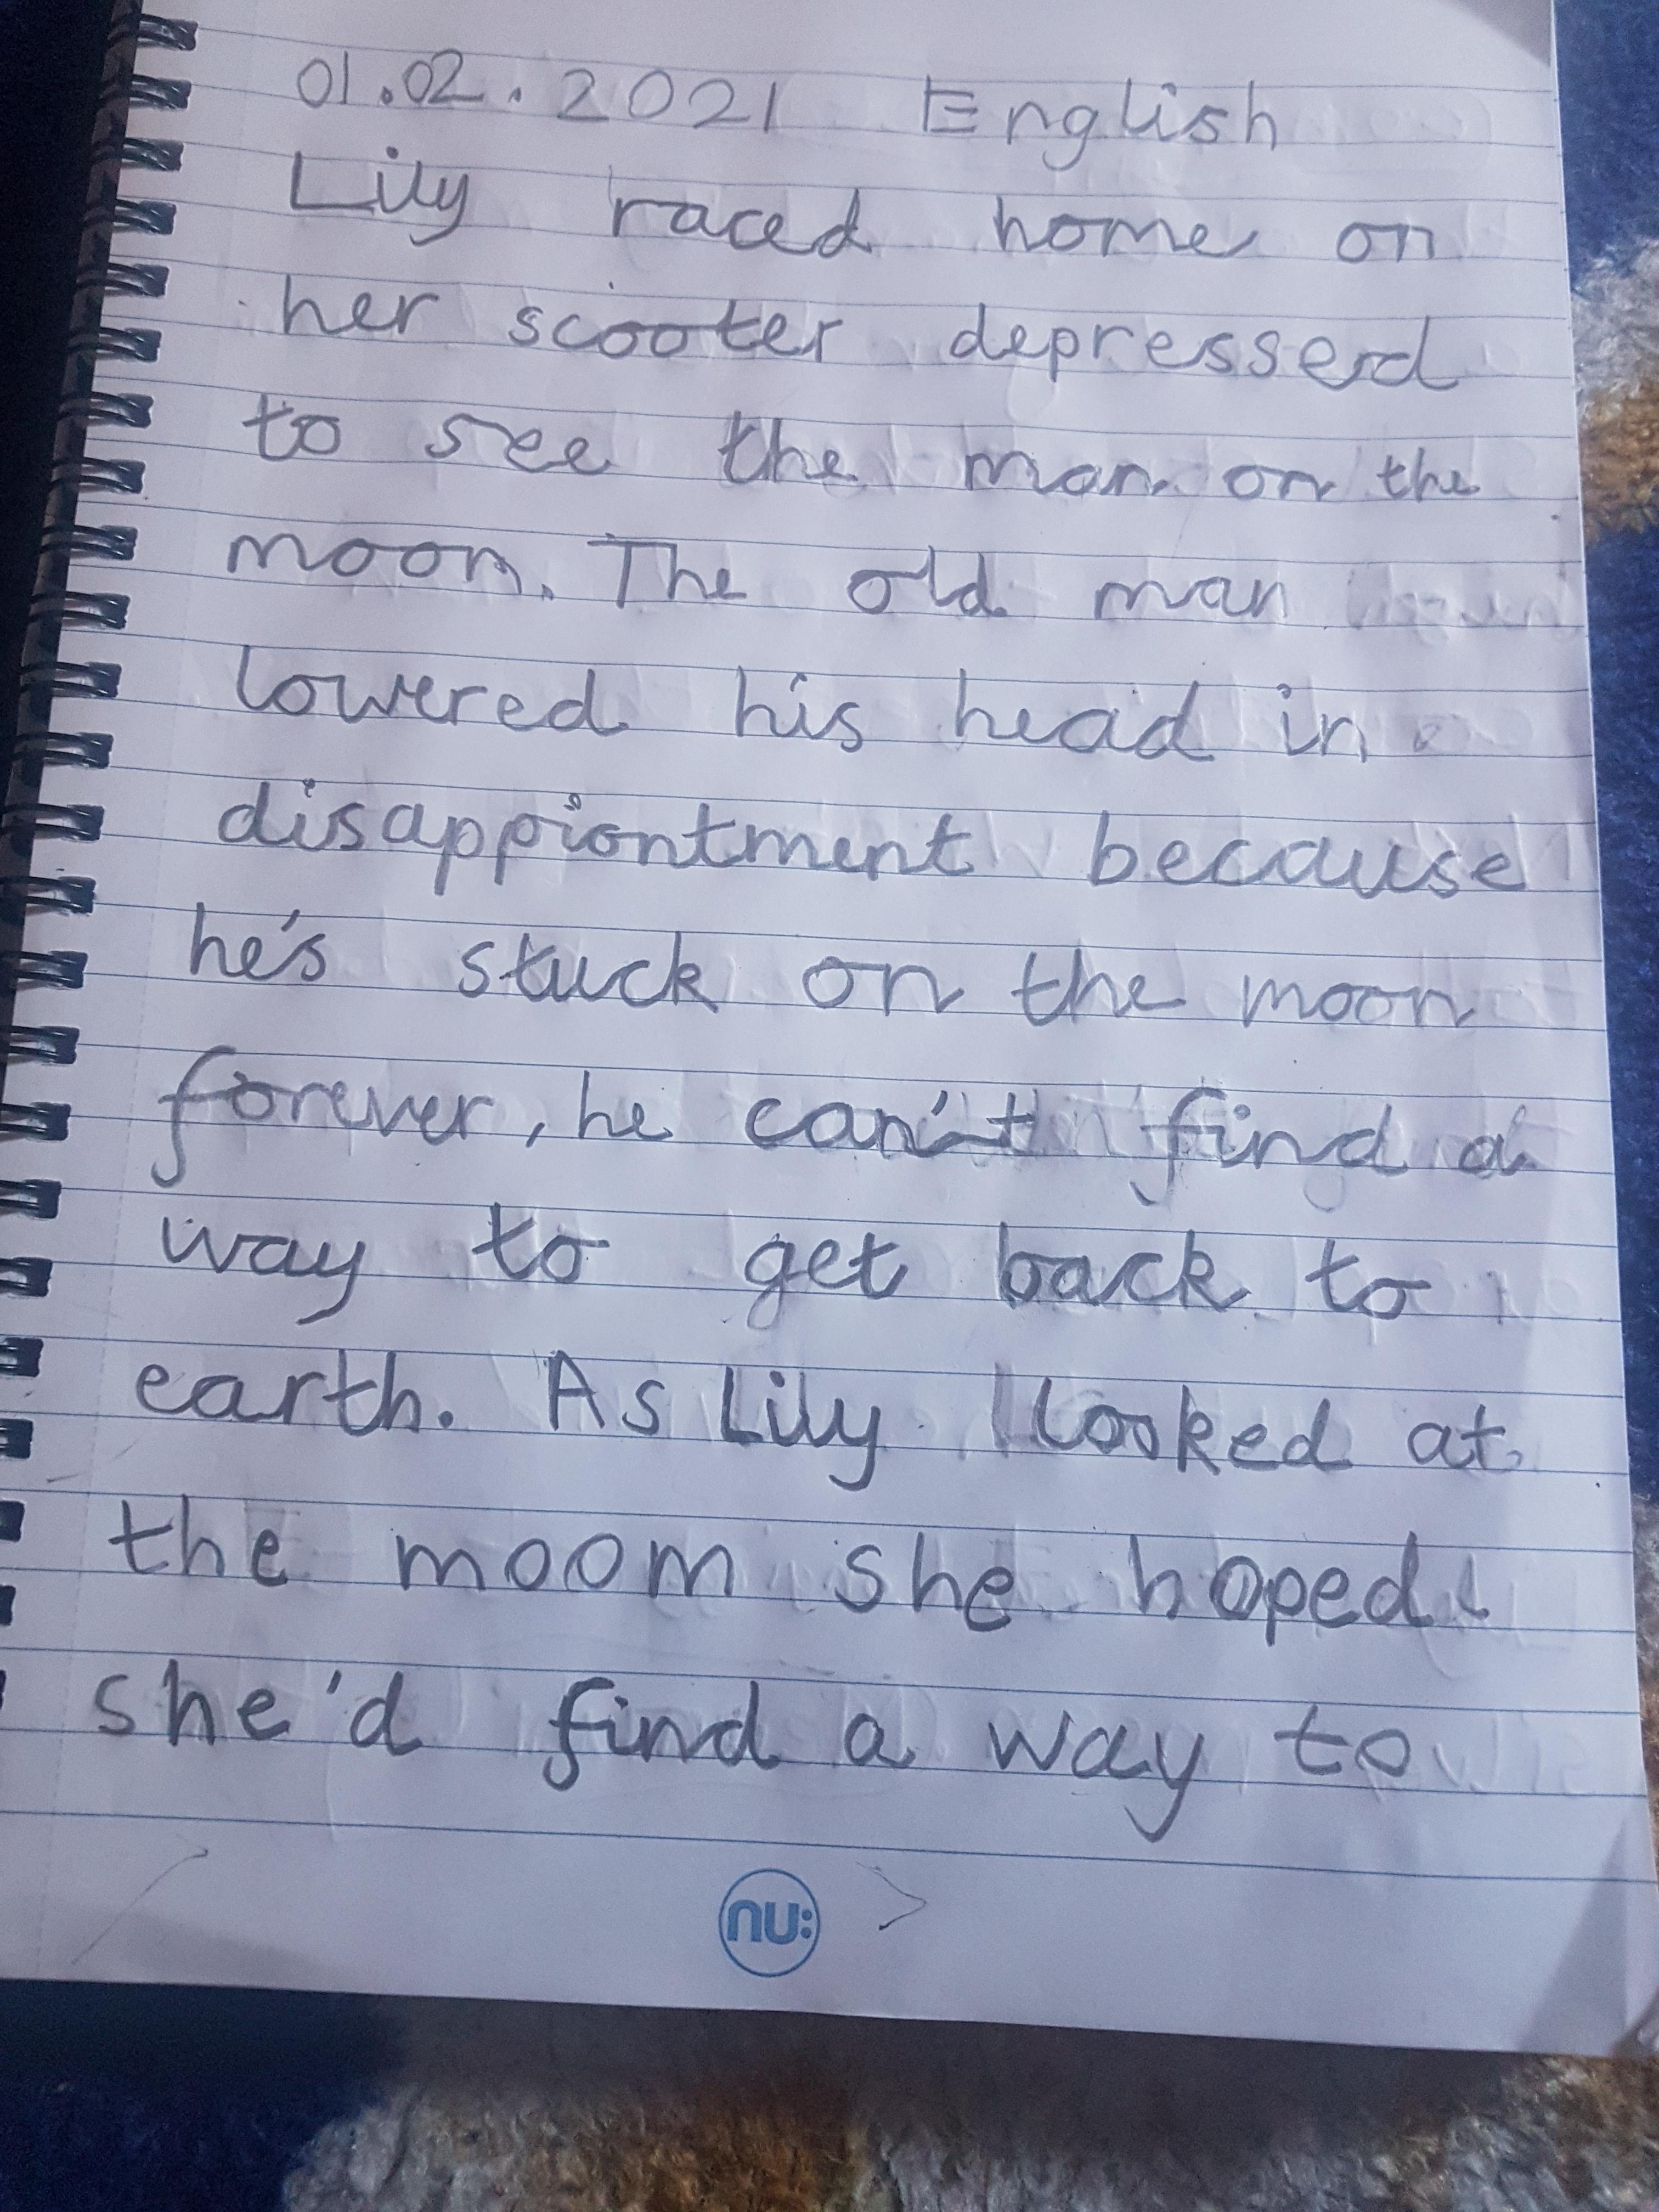 01.02.2021 English
Lily raced home on
her scooter depressed
to see the man on the
moon. The old man
lowered his head in
disappiontment because
he's stuck on the moon
forever, he can't find a
way to get back to
earth. As Lily looked at
the moom she hoped
she'd find a way to
nu: